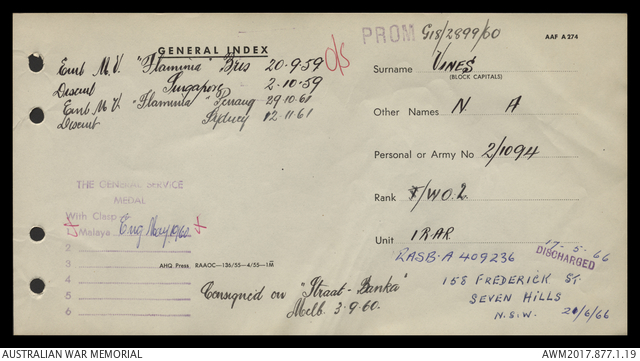 PROM G18/2899/60
AAF A274
GENERAL INDEX
Emb M.V. "Flaminia" Bris 20-9-59 O/S
Disemb Singapore 2-10-59
Emb M.V "Flaminia" Penang 29-10-61
Disemb Sydney 12-11-61
Surname VINES
(BLOCK CAPITALS)
Other Names N A
Personal or Army No 2/1094
Rank T/WO.2
Unit 1RAR
THE GENERAL SERVICE
MEDAL
With Clasp
x 1. Malaya Eng May/10/60 x
2
3
4
5
6
AHQ Press. RAAOC—136/55—4/55—1M
Consigned on "Straat-Banka"
Melb. 3-9-60.
17-5-66
DISCHARGED
RASB. A 409236
158 FREDERICK ST.
SEVEN HILLS
N.S.W. 21/6/66
AUSTRALIAN WAR MEMORIAL
AWM2017.877.1.19